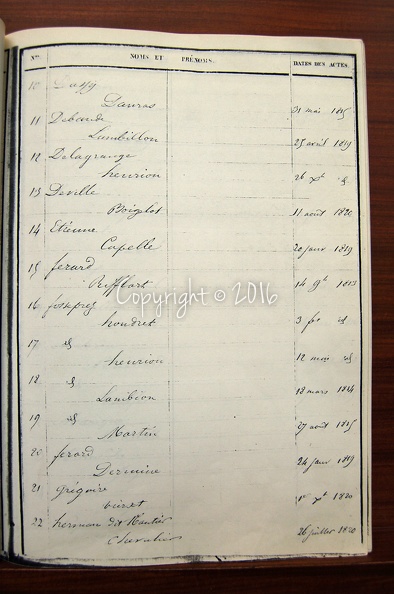 Nos. NOMS ET PRÉNOMS. DATES DES ACTES.
10 Dassy
Dauras 31 mai 1815
11 Debaude
Lambillon 25 avril 1819
12 Delagrange
henrion 26 xbre id
13 Deville
Boigelot 11 août 1820
14 Etienne
Capelle 20 janv 1819
15 ferard
Rifflart 14 9bre 1813
16
houdret 3 id
17 id
henrion 12 mois id
18 id
Lambion 18 mars 1814
19 id
Martin 27 août 1815
20 ferard
Dermine 24 janv 1819
21 grégoire
1er xbre 1820
22 herman dit Nantier
Chevalier 26 juillet 1820
Copyright © 2016